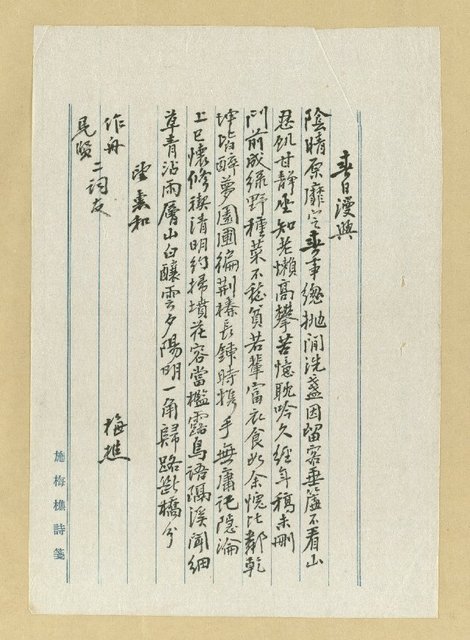 春日漫興
陰晴原靡定春事總拋閒洗盞因留客垂簾不看山
忍飢甘靜坐知老懶高攀苦憶耽吟久經年稿未刪
門前成綠野種菜不愁貧若輩富衣食如余愧比鄰乾
坤皆醉夢園圃徧荊榛長鋏時携手無庸記隱淪
上巳懷修禊清明約掃墳花容當檻露鳥語隔溪聞細
草青沾雨層山白釀雲夕陽明一角歸路斷橋分
望賡和
作舟
見賢二詞友
梅樵
施梅樵詩箋